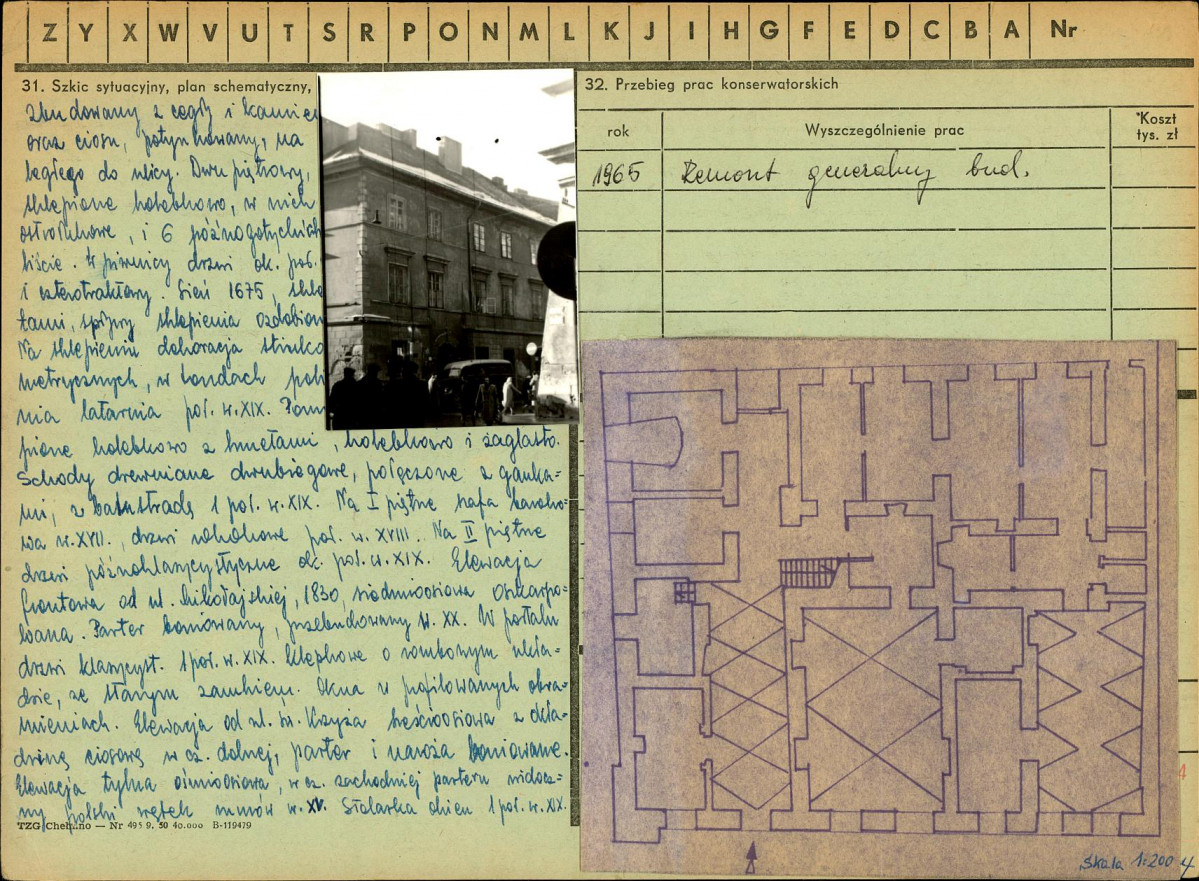 Z Y X W V U T S R P O N M L K J I H G F E D C B A Nr
31. Szkic sytuacyjny, plan schematyczny,
zbudowany z cegły i kamie
oraz ciosu, potynkowany, na
ległego do ulicy. Dwupiętrowy,
sklepione kolebkowo, w nich
ostrołukowe, i 6 późnogotyckich
liście. W piwnicy drzwi ok. poł.
i czterotraktowy. Sień 1675, skle
tami, szpary sklepienia ozdobion
Na sklepieniu dekoracja stiuko
metrycznych, w londach poł
nia latarnia poł. w. XIX. Pom
pione kolebkowo z lunetami, kolebkowo i żaglasto.
Schody drewniane dwubiegowe, połączone z ganka=
mi, z balustradą 1 poł. w. XIX. Na I piętrze szafa baroko=
wa w. XVII., drzwi rokokowe poł. w. XVIII. Na II piętrze
drzwi późnoklasycystyczne ok. poł. w. XIX. Elewacja
frontowa od ul. Mikołajskiej, 1830, siedmioosiowa oskarpo=
wana. Parter boniowany, przebudowany w. XX. W portalu
drzwi klasycyst. 1 poł. w. XIX. klepkowe o rombowym ukła=
dzie, ze starym zamkiem. Okna w profilowanych obra=
mieniach. Elewacja od ul. św. Krzyża sześcioosiowa z okła=
dziną ciosową w cz. dolnej, parter i naroża boniowane.
Elewacja tylna ośmioosiowa, w cz. zachodniej parteru widocz=
ny polski wątek murów w. XV. Stolarka okien 1 poł. w. XIX.
TZG Chełmno — Nr 495 9. 50 40.000 B-119479
32. Przebieg prac konserwatorskich
rok Wyszczególnienie prac *Koszt tys. zł
1965 Remont generalny bud.
Skala 1:200
4